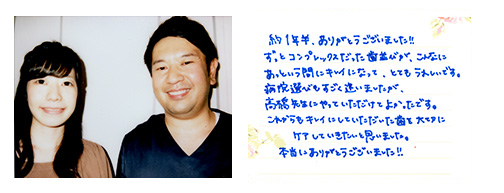 約1年半、ありがとうございました!!
ずっとコンプレックスだった歯並びが、こんなに
あっという間にキレイになって、とてもうれしいです。
病院選びもすごく迷いましたが、
高橋先生にやっていただけてよかったです。
これからもキレイにしていただいた歯を大切に
ケアしていきたいと思いました。
本当にありがとうございました!!